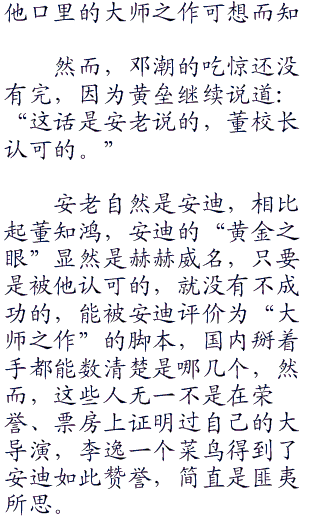 他口里的大师之作可想而知
然而，邓潮的吃惊还没
有完，因为黄垒继续说道：
“这话是安老说的，董校长
认可的。”
安老自然是安迪，相比
起董知鸿，安迪的“黄金之
眼”显然是赫赫威名，只要
是被他认可的，就没有不成
功的，能被安迪评价为“大
师之作”的脚本，国内掰着
手都能数清楚是哪几个，然
而，这些人无一不是在荣
誉、票房上证明过自己的大
导演，李逸一个菜鸟得到了
安迪如此赞誉，简直是匪夷
所思。